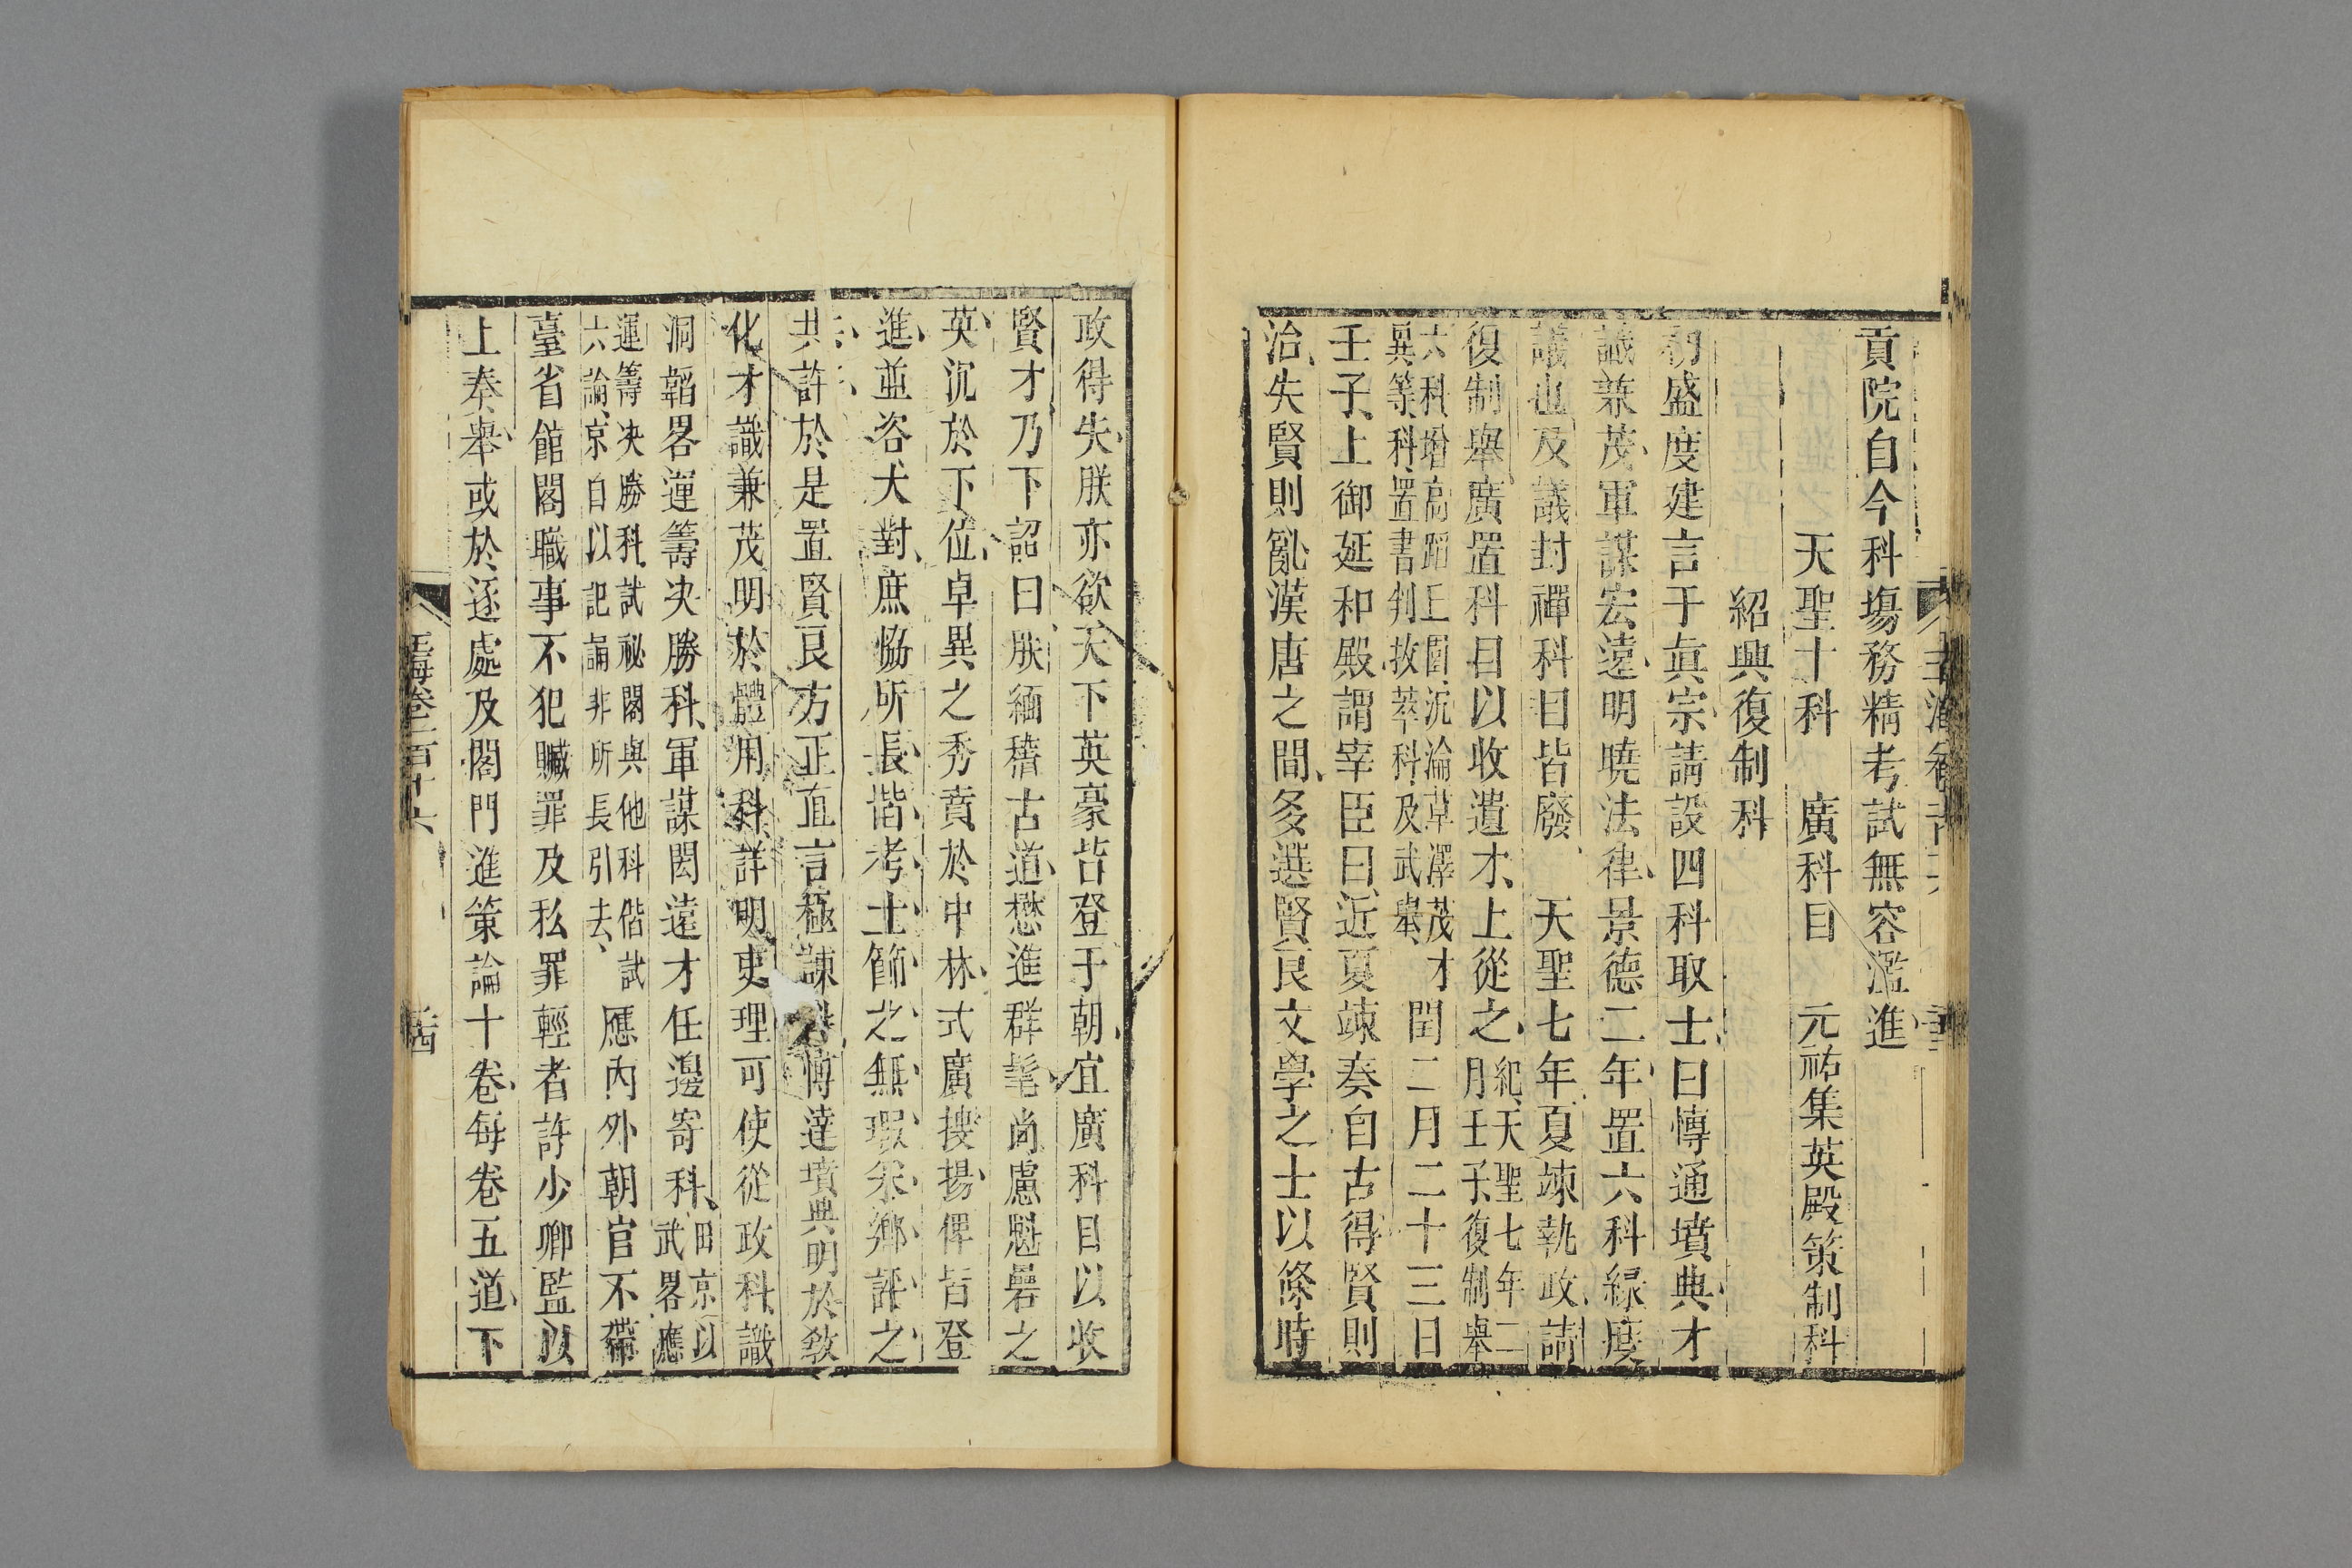 貢院自今科場務精考試無容濫進
天聖十科 廣科目 元祐集英殿策制科
紹興復制科
初盛度建言于眞宗請設四科取士曰博通墳典才
識兼茂軍謀宏遠明曉法律景德二年置六科緣度
議也及議封禪科目皆廢 天聖七年夏竦執政請
復制舉廣置科目以收遺才上從之紀天聖七年二
月壬子復制舉
六科增高蹈丘園沉淪草澤茂才
異等科置書判拔萃科及武舉 閏二月二十三日
壬子上御延和殿謂宰臣曰近夏竦奏自古得賢則
治失賢則亂漢唐之間多選賢良文學之士以條時
政得失朕亦欲天下英豪皆登于朝宜廣科目以收
賢才乃下詔曰朕緬稽古道懋進群髦尚慮魁礨之
英沉於下位卓異之秀賁於中林式廣搜揚俾皆登
進並咨大對庶恊所長揩考士節之無瑕采鄉評之
共許於是置賢良方正直言極諫博達墳典明於敎
化才識兼茂明於體用科詳明吏理可使從政科識
洞韜畧運籌决勝科軍謀閎遠才任邊寄科田京以
武畧應
運籌决勝科試祕閣與他科偕試
六論京自以記誦非所長引去 應內外朝官不帶
臺省館閣職事不犯贓罪及私罪輕者許少卿監以
上奉舉或於逐處及閤門進策論十卷每卷五道下
玉海卷一百十六